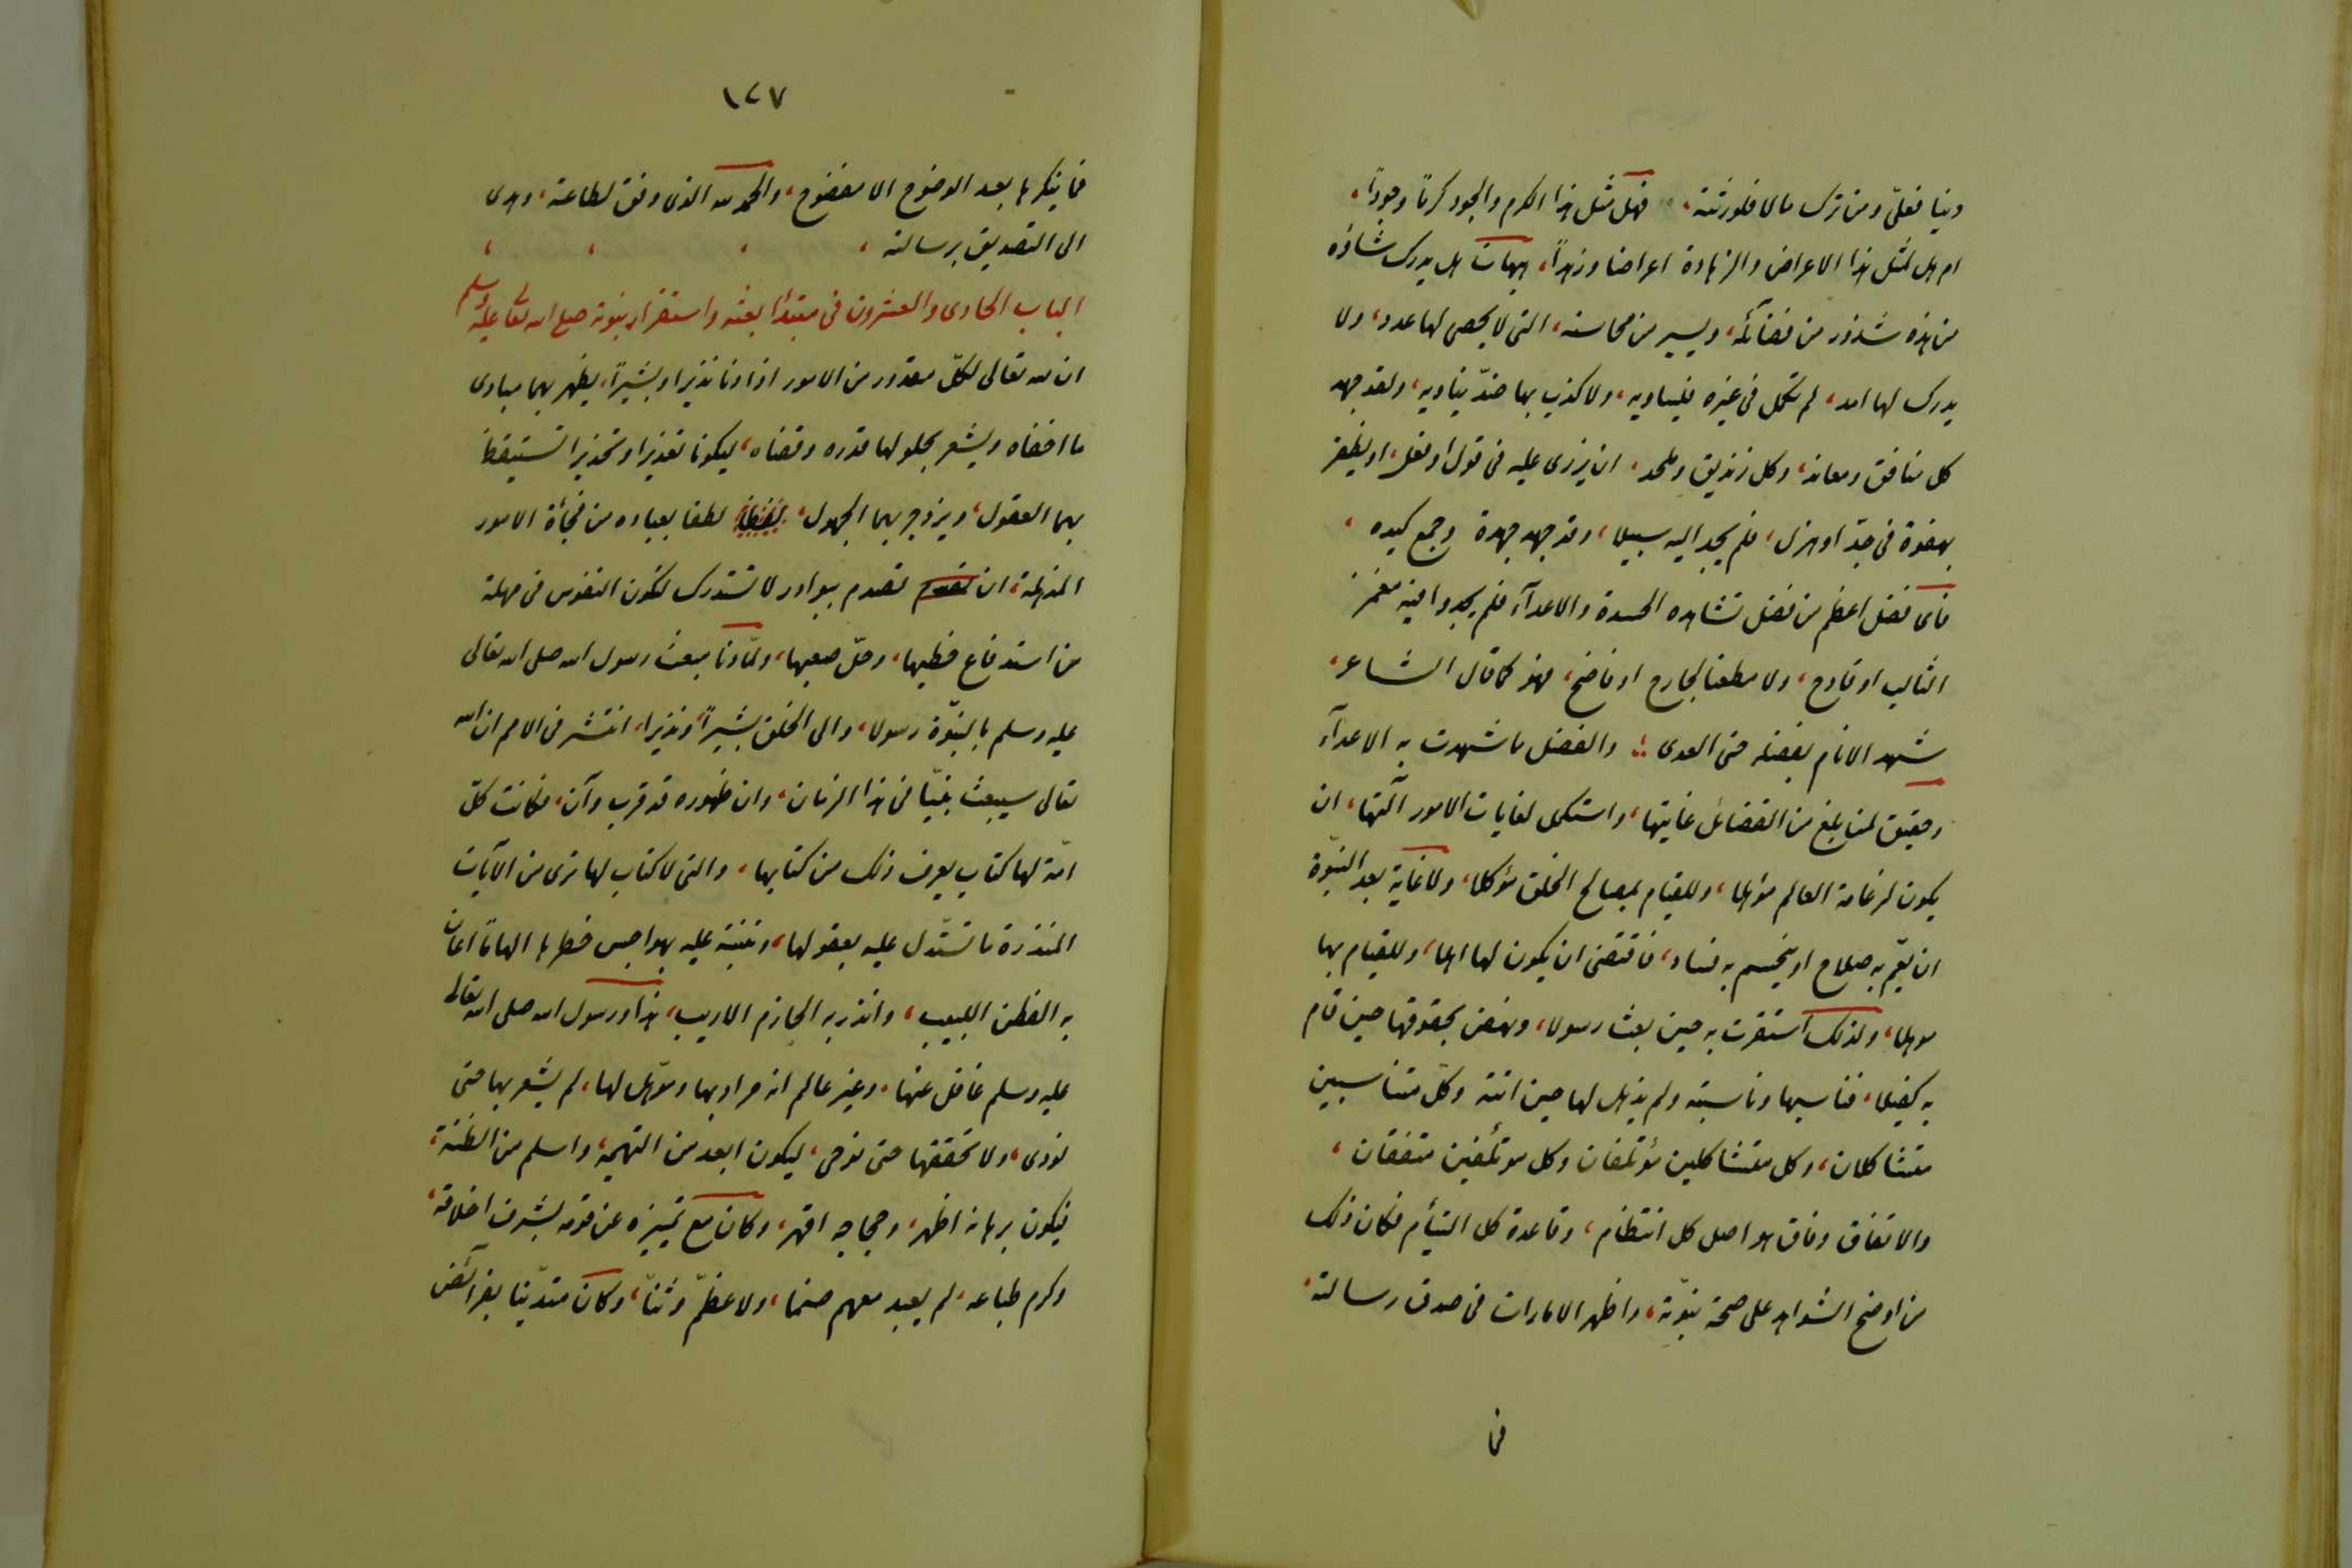 دينا فعليّ ومن ترك مالا فلورثته، فهل مثل هذا الكرم والجود كرماً وجوداً،
ام هل لمثل هذا الاعراض والزهادة اعراضا وزهداً، هيهات هل يدرك شاؤه
من هذه شذور من فضائله، ويسير من محاسنه، التى لا يحصى لها عدد، ولا
يدرك لها امد، لم تكمل فى غيره فيساويه، ولا كذب بها ضدّ يناويه، ولقد جهد
كل منافق ومعاند، وكل زنديق وملحد، ان يزرى عليه فى قول او فعل، او يظفر
بهفوة فى جدّ او هزل، فلم يجد اليه سبيلا، وقد جهد جهده وجمع كيده،
فاى فضل اعظم من فضل تشاهده الحسدة والاعدآء فلم يجدوا فيه مغمز
الثالب او قادح، ولا مطعنا لجارح او فاضح، فهو كما قال الشاعر،
شهد الانام بفضله حتى العدى ؛ والفضل ما شهدت به الاعدآء
وحقيق لمن بلغ من الفضائل غايتها، واستكمل لغايات الامور آلتها، ان
يكون لزعامة العالم مؤهلا، وللقيام بمصالح الخلق مؤكلا، ولا غاية بعد النبوّة
ان يعمّ به صلاح او ينحسم به فساد، فاقتضى ان يكون لها اهلا، وللقيام بها
موهلا، ولذلك استقرت به حين بعث رسولا، ونهض بحقوقها حين قام
به كفيلا، فناسبها وناسبته ولم يذهل لها حين اتته وكل متناسبين
متشاكلان، وكل متشاكلين مؤتلفان وكل مؤتلفين متفقان،
والاتفاق وفاق هو اصل كل انتظام، وقاعدة كل التيأم فكان ذلك
من اوضح الشواهد على صحة نبوّته، واظهر الامارات فى صدق رسالته،
فما
١٢٧
فما ينكرها بعد الوضوح الا مفضوح، والحمد لله الذى وفق لطاعته، وهدى
الى التصديق برسالته ،
الباب الحادى والعشرون فى مبتدأ بعثه واستقرار نبوته صلى الله تعالى عليه وسلم
ان لله تعالى لكلّ مقدور من الامور اذا دنا نذيرا وبشيراً، يظهر بهما مبادى
ما اخفاه ويشعر بحلولها قدره وقضاه، ليكونا تعذيرا وتحذيرا تستيقظ
بهما العقول، ويزدجر بهما الجهول، لطفا بعباده من فجأة الامور
المذهلة، ان تصدم ببوادر لا تستدرك لتكون النفوس فى مهلة
من استدفاع خطبها، وحلّ صعبها، ولمّا دنا مبعث رسول الله صلى الله تعالى
عليه وسلم بالنبوّة رسولا، والى الخلق بشيراً ونذيرا، انتشر فى الامم ان الله
تعالى سيبعث نبيّا فى هذا الزمان، وان ظهوره قد قرب وآن، فكانت كلّ
امّة لها كتاب يعرف ذلك من كتابها، والتى لا كتاب لها ترى من الآيات
المنذرة ما تستدل عليه بعقولها، وتنبه عليه بهواجس فطرها الهاماً اعان
به الفطن اللبيب، وانذر به الحازم الاريب، هذا ورسول الله صلى الله تعالى
عليه وسلم غافل عنها، وغير عالم انه مراد بها ومؤهل لها، لم يشعر بها حتى
نودى، ولا تحققها حتى نوجى، ليكون ابعد من التهمة، واسلم من الظنة،
فيكون برهانه اظهر، وحجاجه اقهر، وكان مع تميزه عن قومه بشرف اخلاقه،
وكرم طباعه، لم يعبد معهم صنما، ولا عظّم وثناً، وكان متديّنا بفرائض